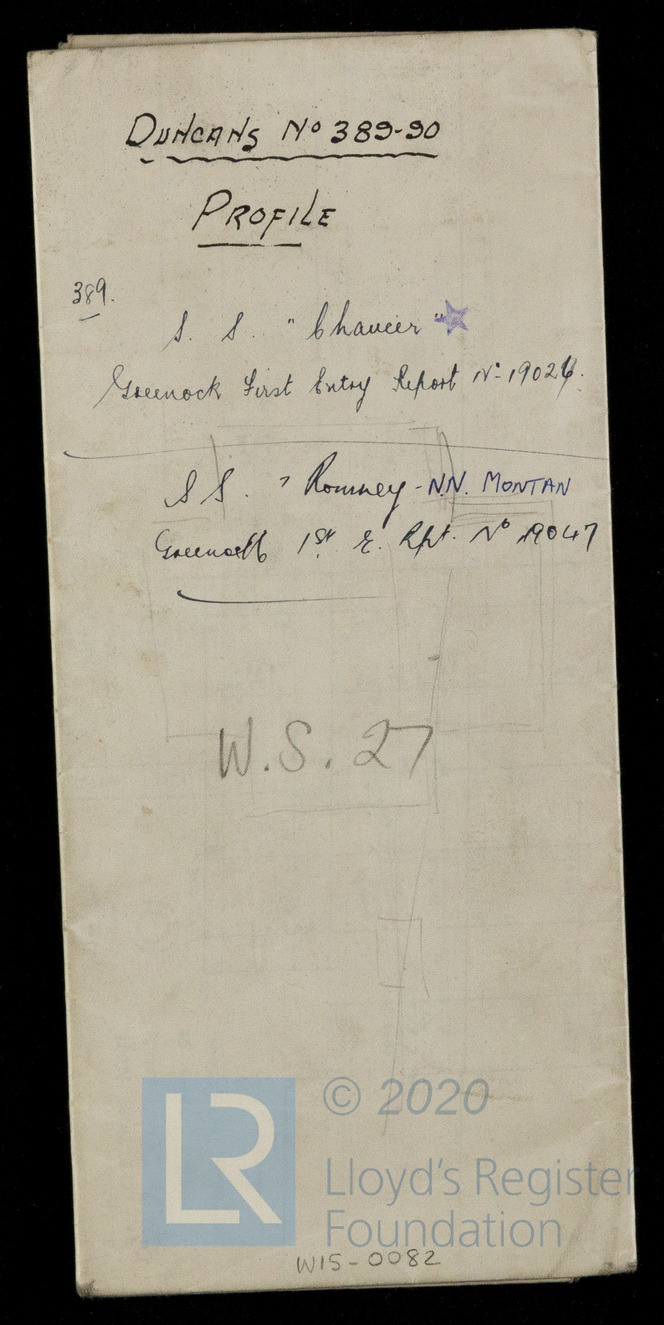 DUNCANS No 389-90
PROFILE
389.
S. S. "Chaucer"
Greenock First Entry Report No 19026.
S S. " Romney - N.N. MONTAN
Greenock 1st E. Rpt. No 19047
W.S. 27
LR
© 2020
Lloyd's Register
Foundation
W15-0082